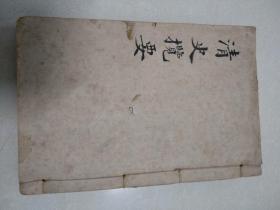 清史攬要